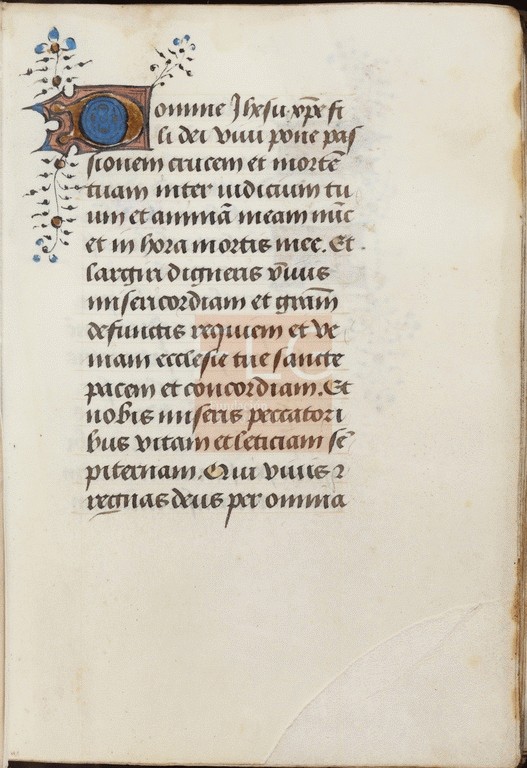 Domine Jhesu xp̄e fi
li dei viui pone pas
sionem crucem et mortē
tuam inter iudicium tu
um et animā meam nūc
et in hora mortis mee. Et
largiri digneris viuis
misericordiam et gr̄am
defunctis requiem et ve
niam ecclesie tue sancte
pacem et concordiam. Et
nobis miseris peccatori
bus vitam et leticiam sē
piternam. Qui viuis ⁊
regnas deus per omnia